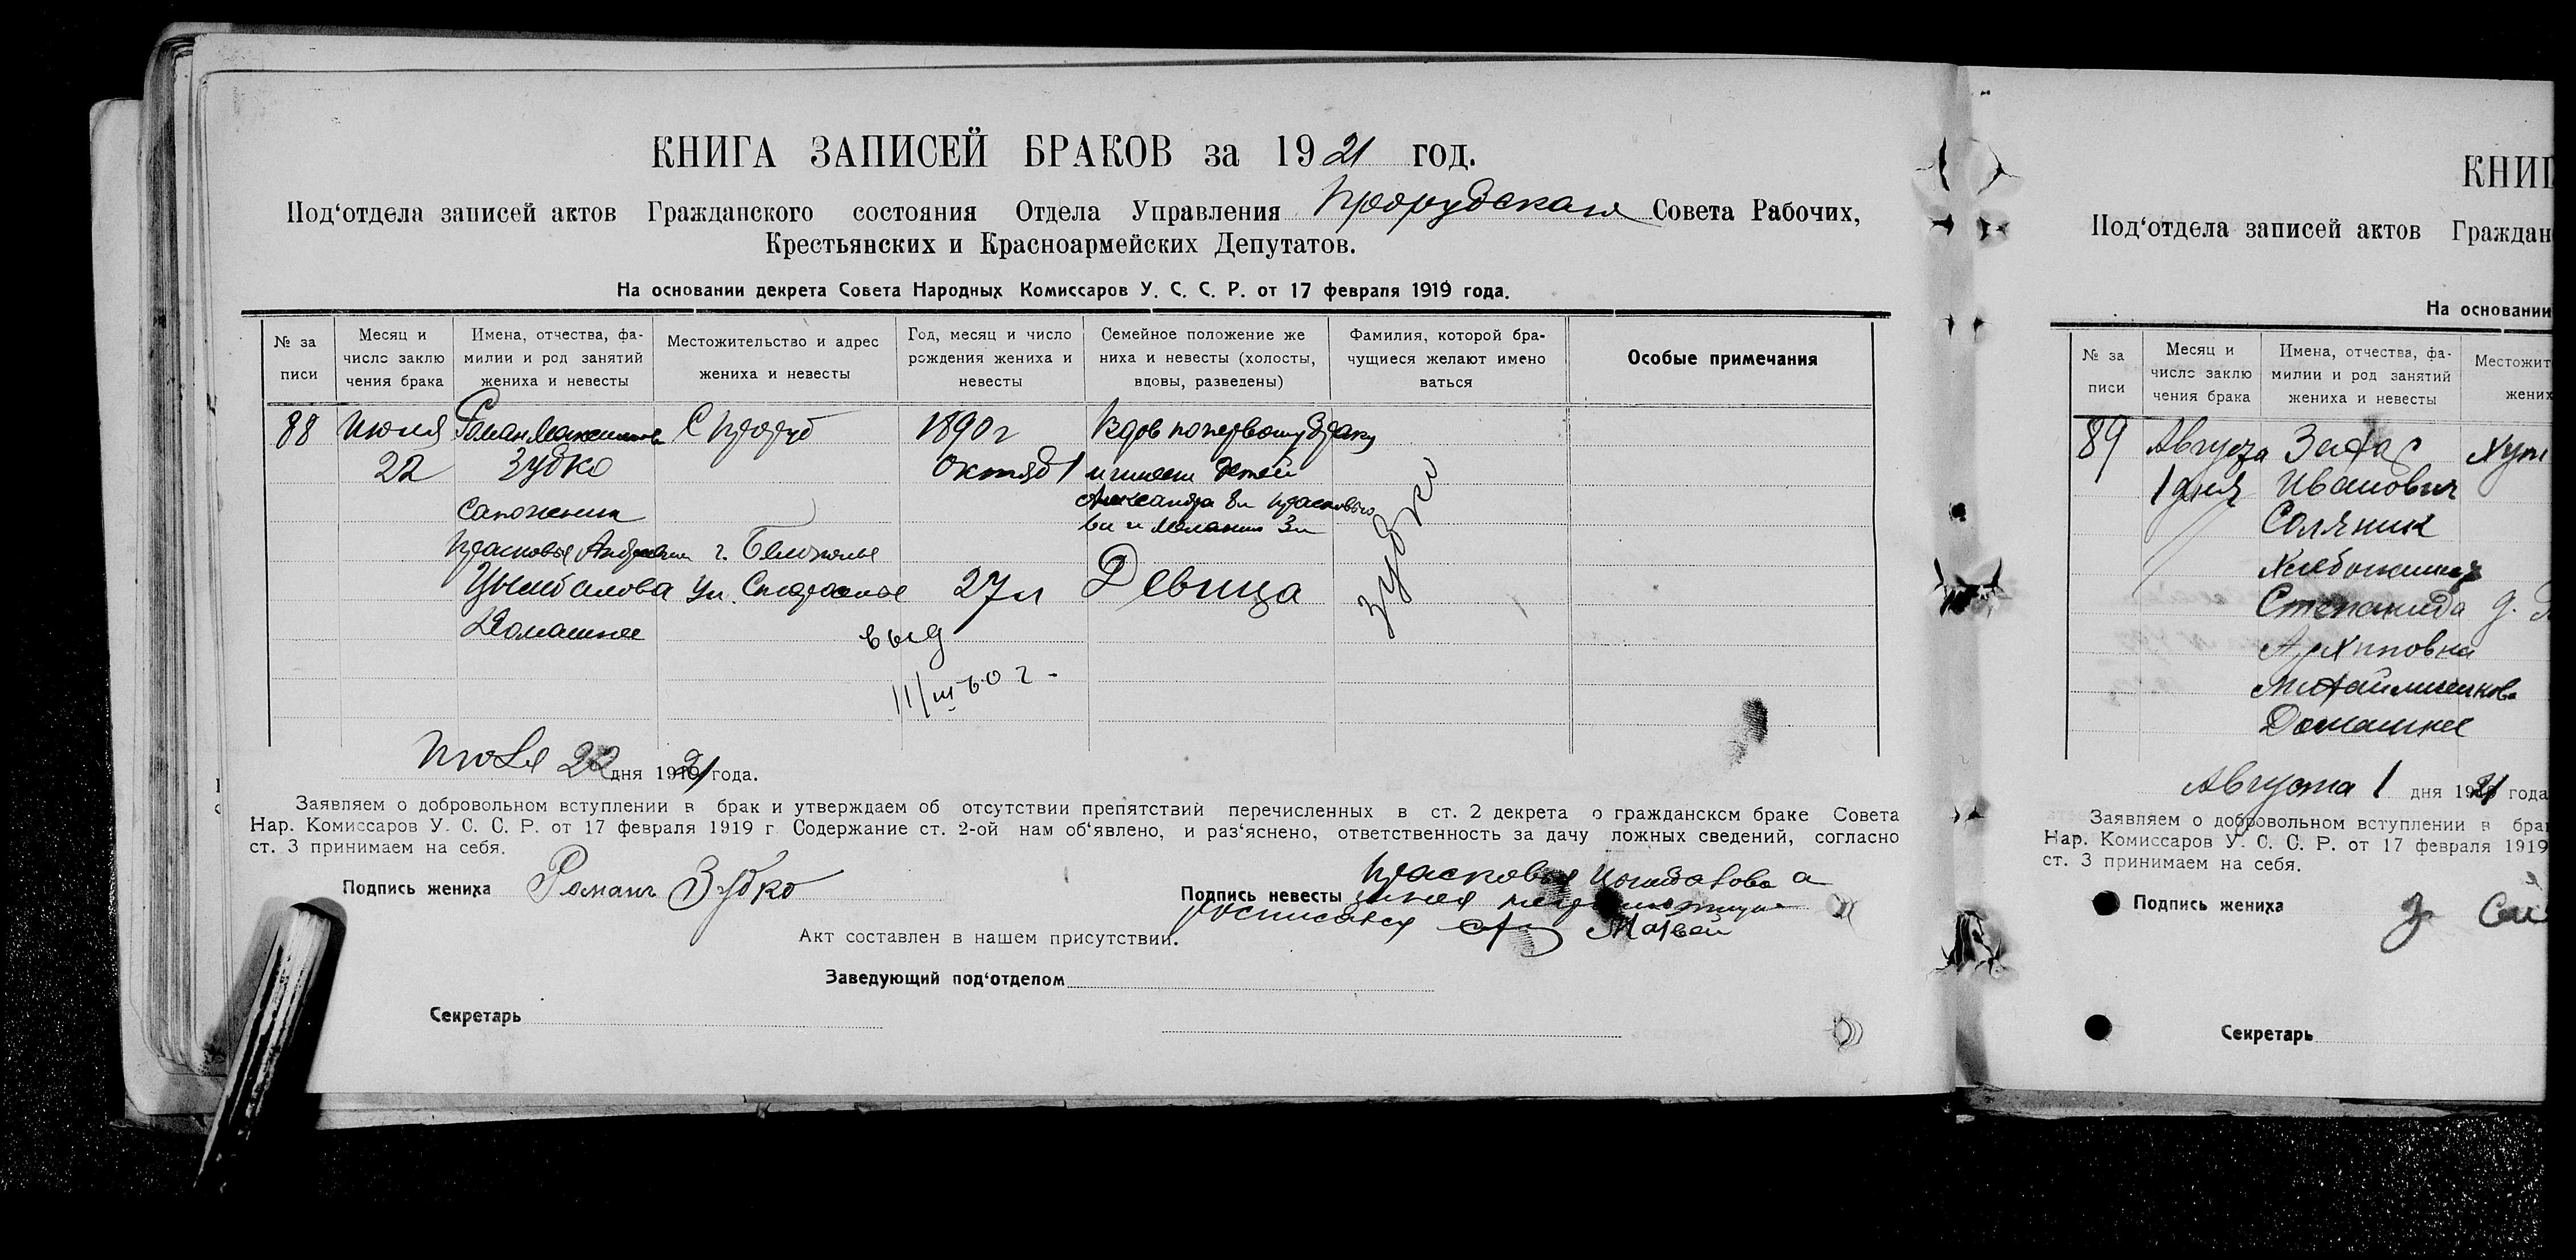 КНИГА ЗАПИСЕЙ БРАКОВ за 1921 год.
Под‘отдела записей актов Гражданского состояния Отдела Управления Прорубская Совета Рабочих,
Крестьянских и Красноармейских Депутатов.
На основании декрета Совета Народных Комиссаров У. С. С. Р. от 17 февраля 1919 года.
№ за
писи
Месяц и
число заклю
чения брака
Имена, отчества, фа-
милии и род занятий
жениха и невесты
Местожительство и адрес
жениха и невесты
Год, месяц и число
рождения жениха и
невесты
Семейное положение же
ниха и невесты (холосты,
вдовы, разведены)
Фамилия, которой бра-
чущиеся желают имено
ваться
Особые примечания
88
Июля
22
Роман Максимов
Зубко
Сапожник
С Проруб
1890 г
Октяб 1
Вдов по первому браку
и имеет детей
Александра 8 л Прасковью
6 л и Меланию 3 л
Зубко
Прасковья Андреевна
Цымбалова
Домашнее
г. Белополье
Ул. Старосель
27 л
Девица
выд
11/III 60 г.
Июля 22 дня 1921 года.
Заявляем о добровольном вступлении в брак и утверждаем об отсутствии препятствий перечисленных в ст. 2 декрета о гражданском браке Совета
Нар. Комиссаров У. С. С. Р. от 17 февраля 1919 г Содержание ст. 2-ой нам об‘явлено, и раз‘яснено, ответственность за дачу ложных сведений, согласно
ст. 3 принимаем на себя.
Подпись жениха Романъ Зубко
Подпись невесты Прасковья Цымбалова а
за нея
росписался Матвей
Акт составлен в нашем присутствии.
Заведующий под‘отделом
Секретарь
КНИГ
Под‘отдела записей актов Граждан
На основании
№ за
писи
Месяц и
число заклю
чения брака
Имена, отчества, фа-
милии и род занятий
жениха и невесты
Местожит
жених
89
Августа
1 дня
Захар
Иванович
Соляник
Хлебопашец
Хут
Степанида
Архиповна
Михайличенкова
Домашнее
д.
Августа 1 дня 1921 года
Заявляем о добровольном вступлении в бра
Нар. Комиссаров У. С. С. Р. от 17 февраля 1919
ст. 3 принимаем на себя.
Подпись жениха
Секретарь